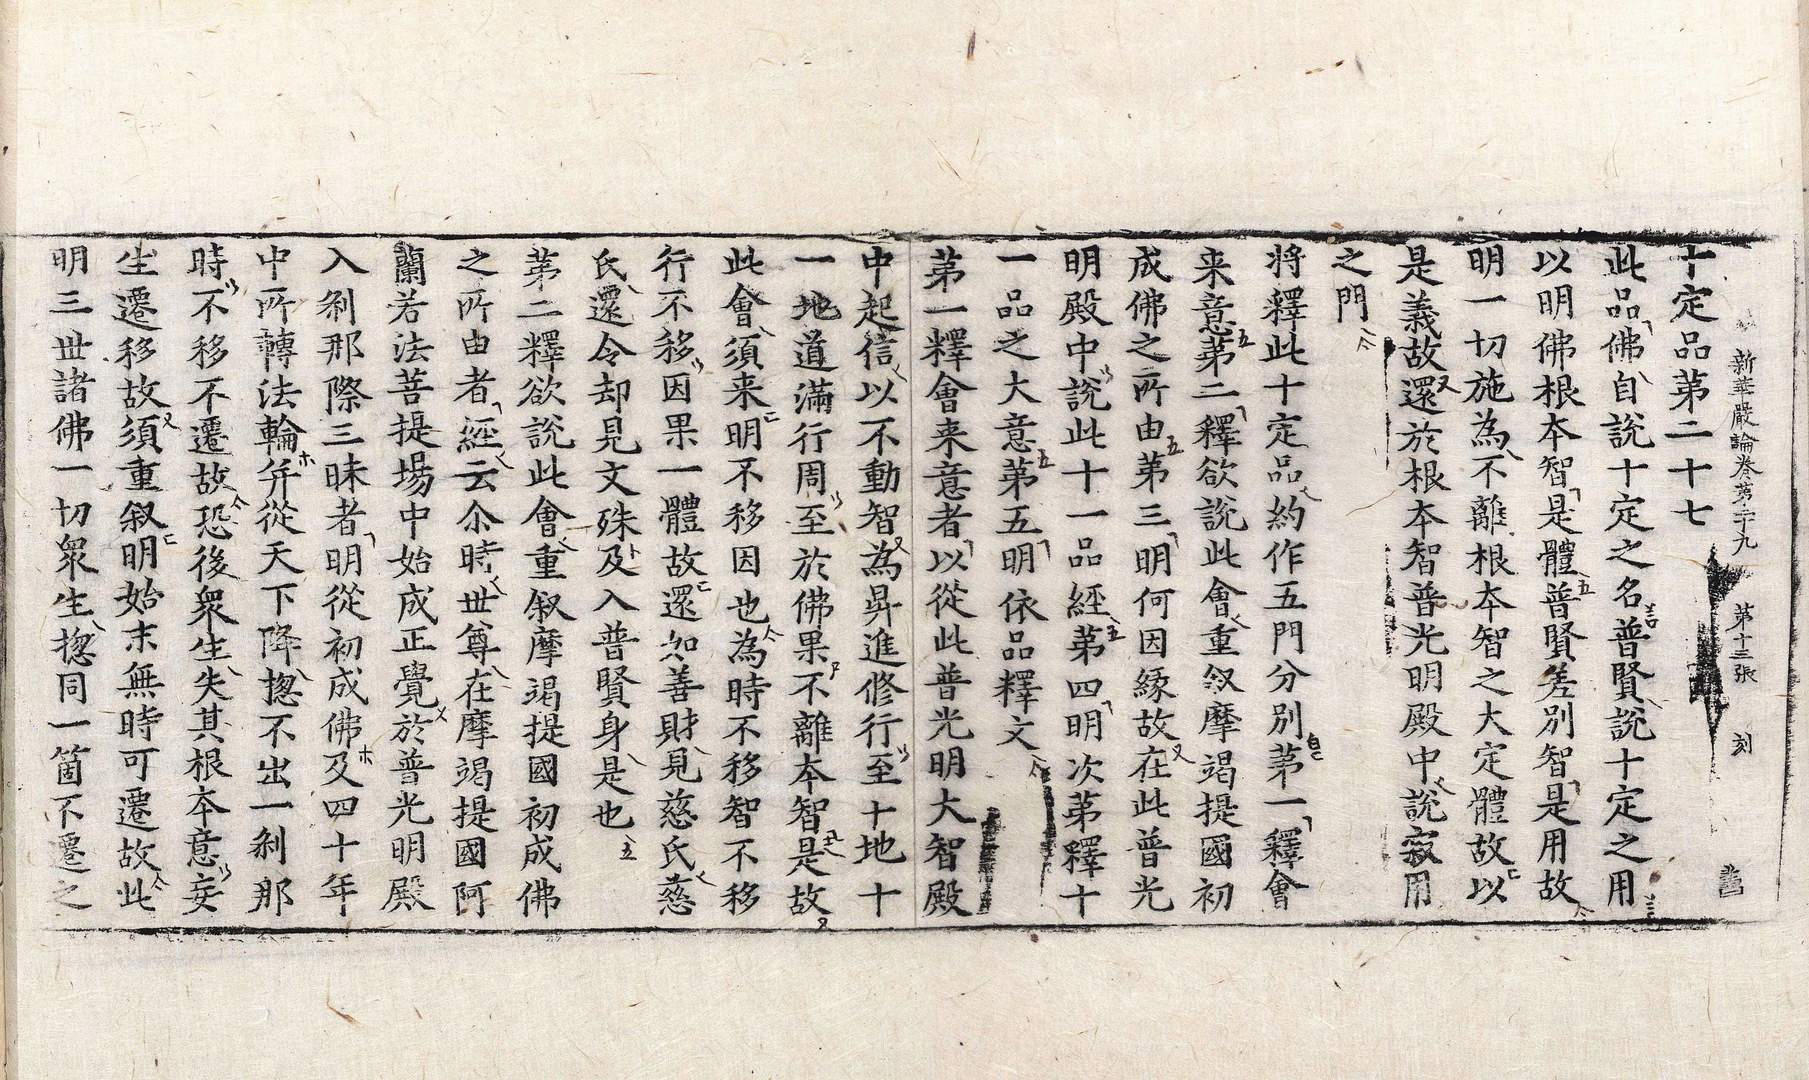 新華嚴論卷第二十九 第十三張 刻
十定品第二十七
此品佛自說十定之名普賢說十定之用
以明佛根本智是體普賢差別智是用故
明一切施為不離根本智之大定體故以
是義故還於根本智普光明殿中說寂用
之門
將釋此十定品約作五門分別第一釋會
来意第二釋欲說此會重叙摩竭提國初
成佛之所由第三明何因緣故在此普光
明殿中說此十一品經第四明次第釋十
一品之大意第五明依品釋文
第一釋會来意者以從此普光明大智殿
中起信以不動智為昇進修行至十地十
一地道滿行周至於佛果不離本智是故
此會須来明不移因也為時不移智不移
行不移因果一體故還如善財見慈氏慈
氏還令却見文殊及入普賢身是也
第二釋欲說此會重叙摩竭提國初成佛
之所由者經云尒時世尊在摩竭提國阿
蘭若法菩提場中始成正覺於普光明殿
入剎那際三昧者明從初成佛及四十年
中所轉法輪并從天下降揔不出一剎那
時不移不遷故恐後衆生失其根本意妄
生遷移故須重叙明始末無時可遷故此
明三世諸佛一切衆生揔同一箇不遷之